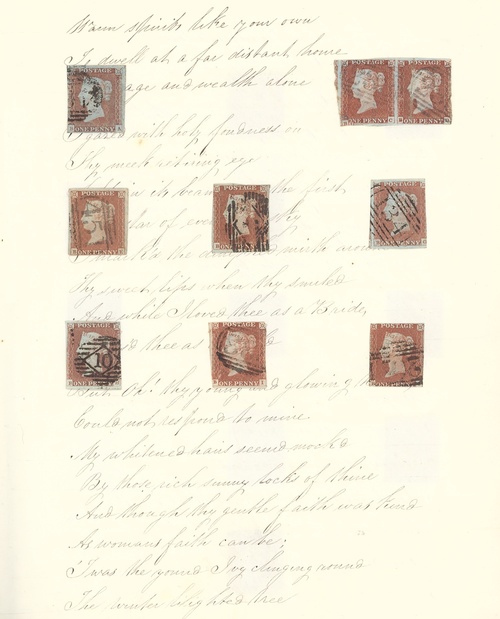 Warm spirits like your own
To dwell at a far distant home
age and wealth alone
POSTAGE
ONE PENNY
POSTAGE
ONE PENNY
POSTAGE
ONE PENNY
I gazed with holy fondness on
Thy meek retiring eye
the first
POSTAGE
ONE PENNY
POSTAGE
ONE PENNY
POSTAGE
ONE PENNY
star of
mirth
Thy sweet lips when they smiled
And while I loved thee as a Bride,
thee as
POSTAGE
10
ONE PENNY
POSTAGE
ONE PENNY
POSTAGE
ONE PENNY
But Oh! thy young and glowing
Could not respond to mine
My whitened hairs seemd mockd
By those rich sunny locks of thine
And though thy gentle faith was kind
As womans faith can be;
'Twas the young Ivy clinging round
The winter blighted tree